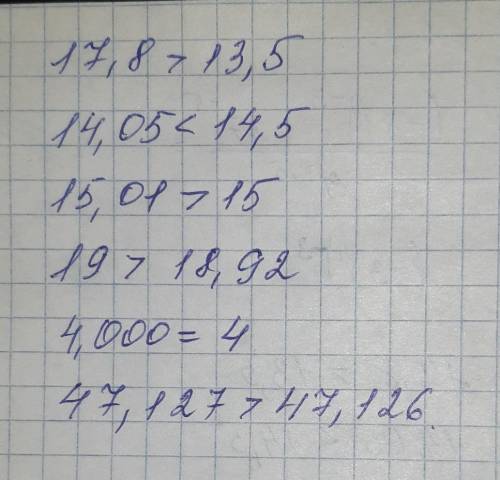 17,8 > 13,5
14,05 < 14,5
15,01 > 15
19 > 18,92
4,000 = 4
47,127 > 47,126.